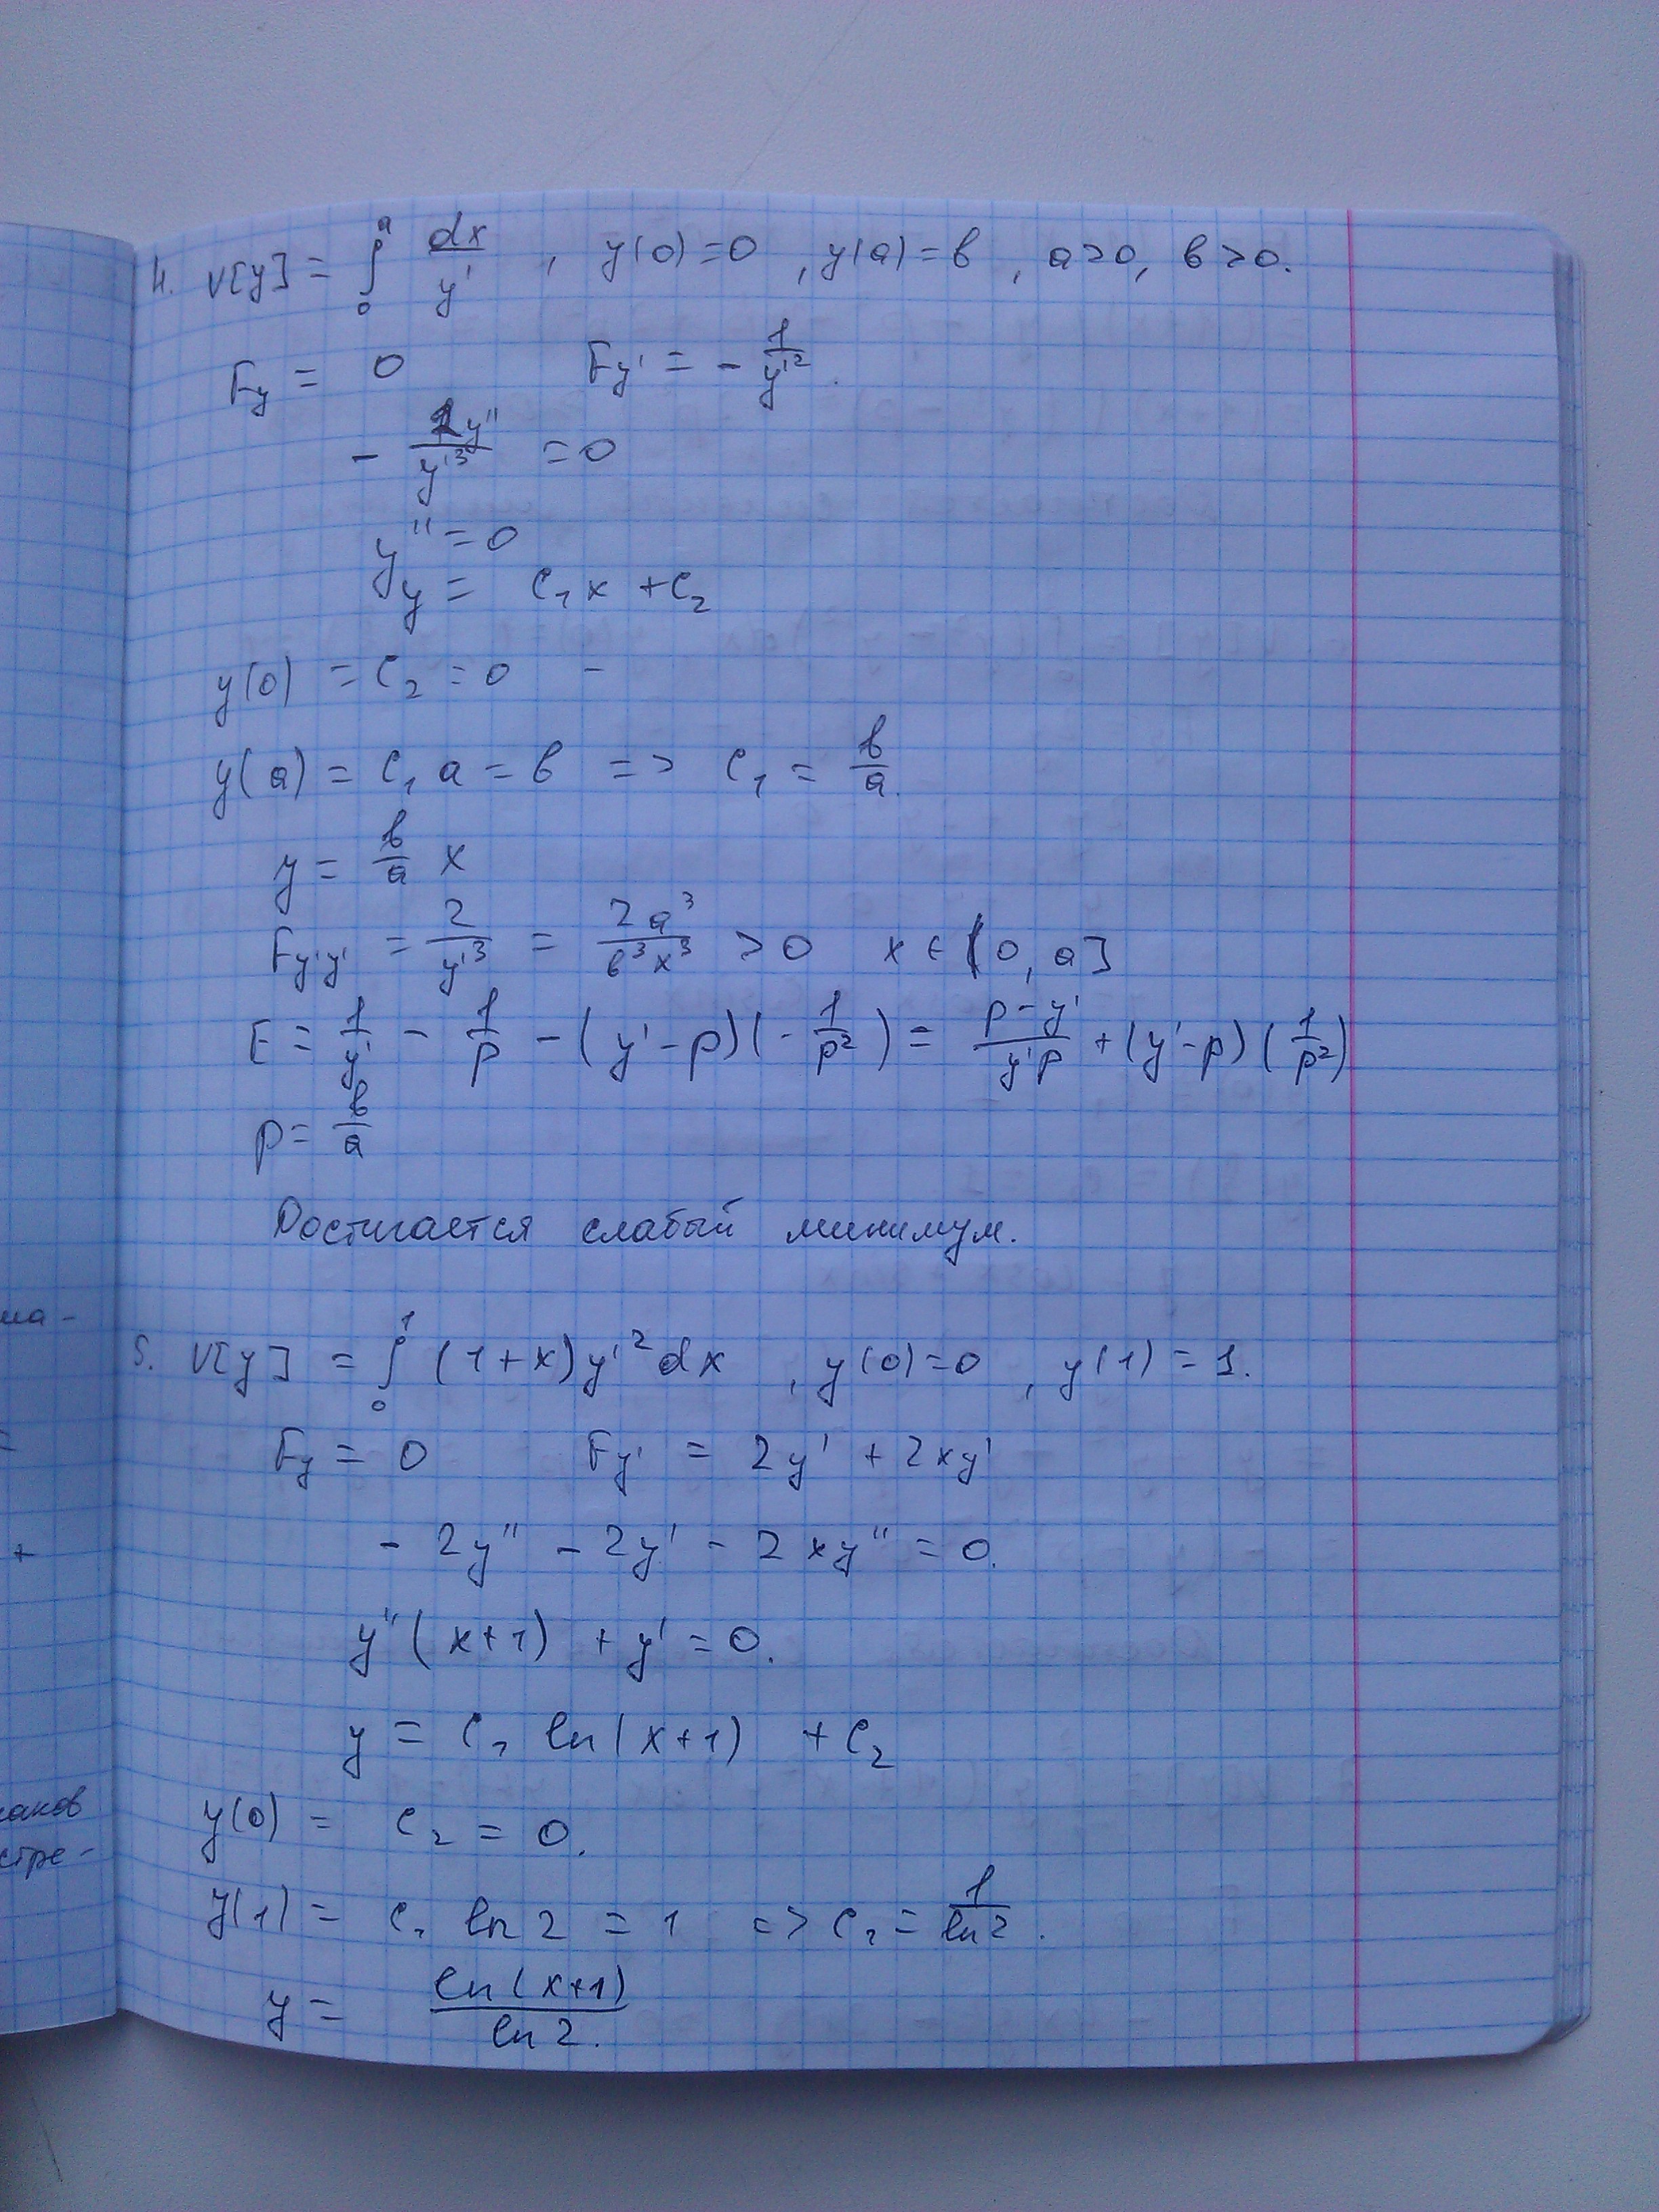 4. V[y] = ∫₀ᵃ dx/y' , y(0)=0 , y(a)=в , a>0, в>0.
Fy = 0 Fy' = - 1/y'².
- 2y''/y'³ = 0
y''=0
y = C₁x + C₂
y(0) = C₂ = 0 -
y(a) = C₁a = в => C₁ = в/a.
y = в/a x
Fy'y' = 2/y'³ = 2a³/в³x³ > 0 x ∈ (0, a]
E = 1/y' - 1/p - (y'-p)(-1/p²) = p-y'/y'p + (y'-p)(1/p²)
p = в/a
Достигается слабый минимум.
ма-
5. V[y] = ∫₀¹ (1+x)y'²dx , y(0)=0 , y(1)=1.
=
Fy = 0 Fy' = 2y' + 2xy'
+
- 2y'' - 2y' - 2xy'' = 0.
y''(x+1) + y' = 0.
y = C₁ ln(x+1) + C₂
аков
y(0) = C₂ = 0.
стре-
y(1) = C₁ ln2 = 1 => C₁ = 1/ln2.
y = ln(x+1)/ln2.